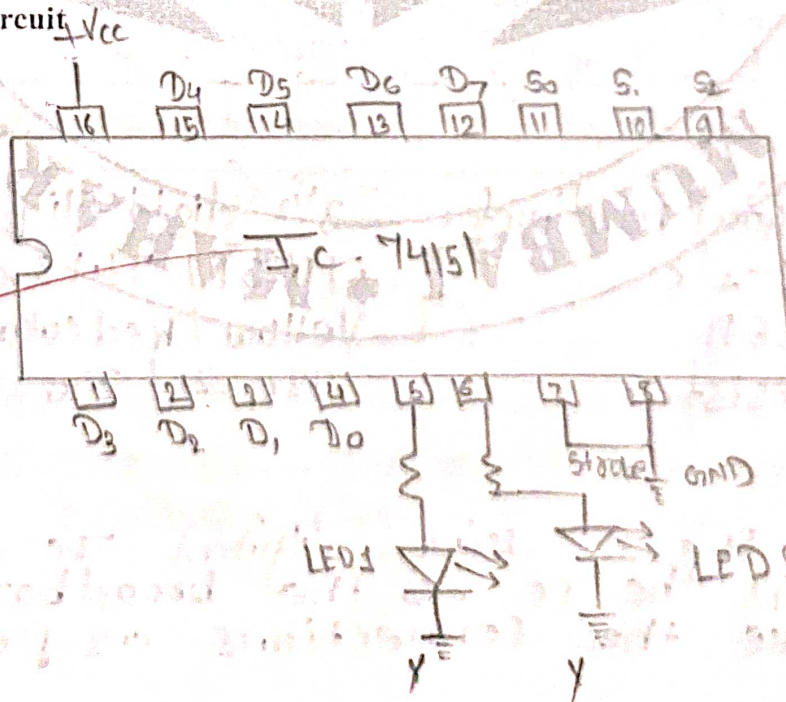 rcuit
+Vcc
D4 D5 D6 D7 S0 S1 S2
16 15 14 13 12 11 10 9
MUMBA
I.C. 74151
1 2 3 4 5 6 7 8
D3 D2 D1 D0
Strobe GND
LED1 LED
Y Y